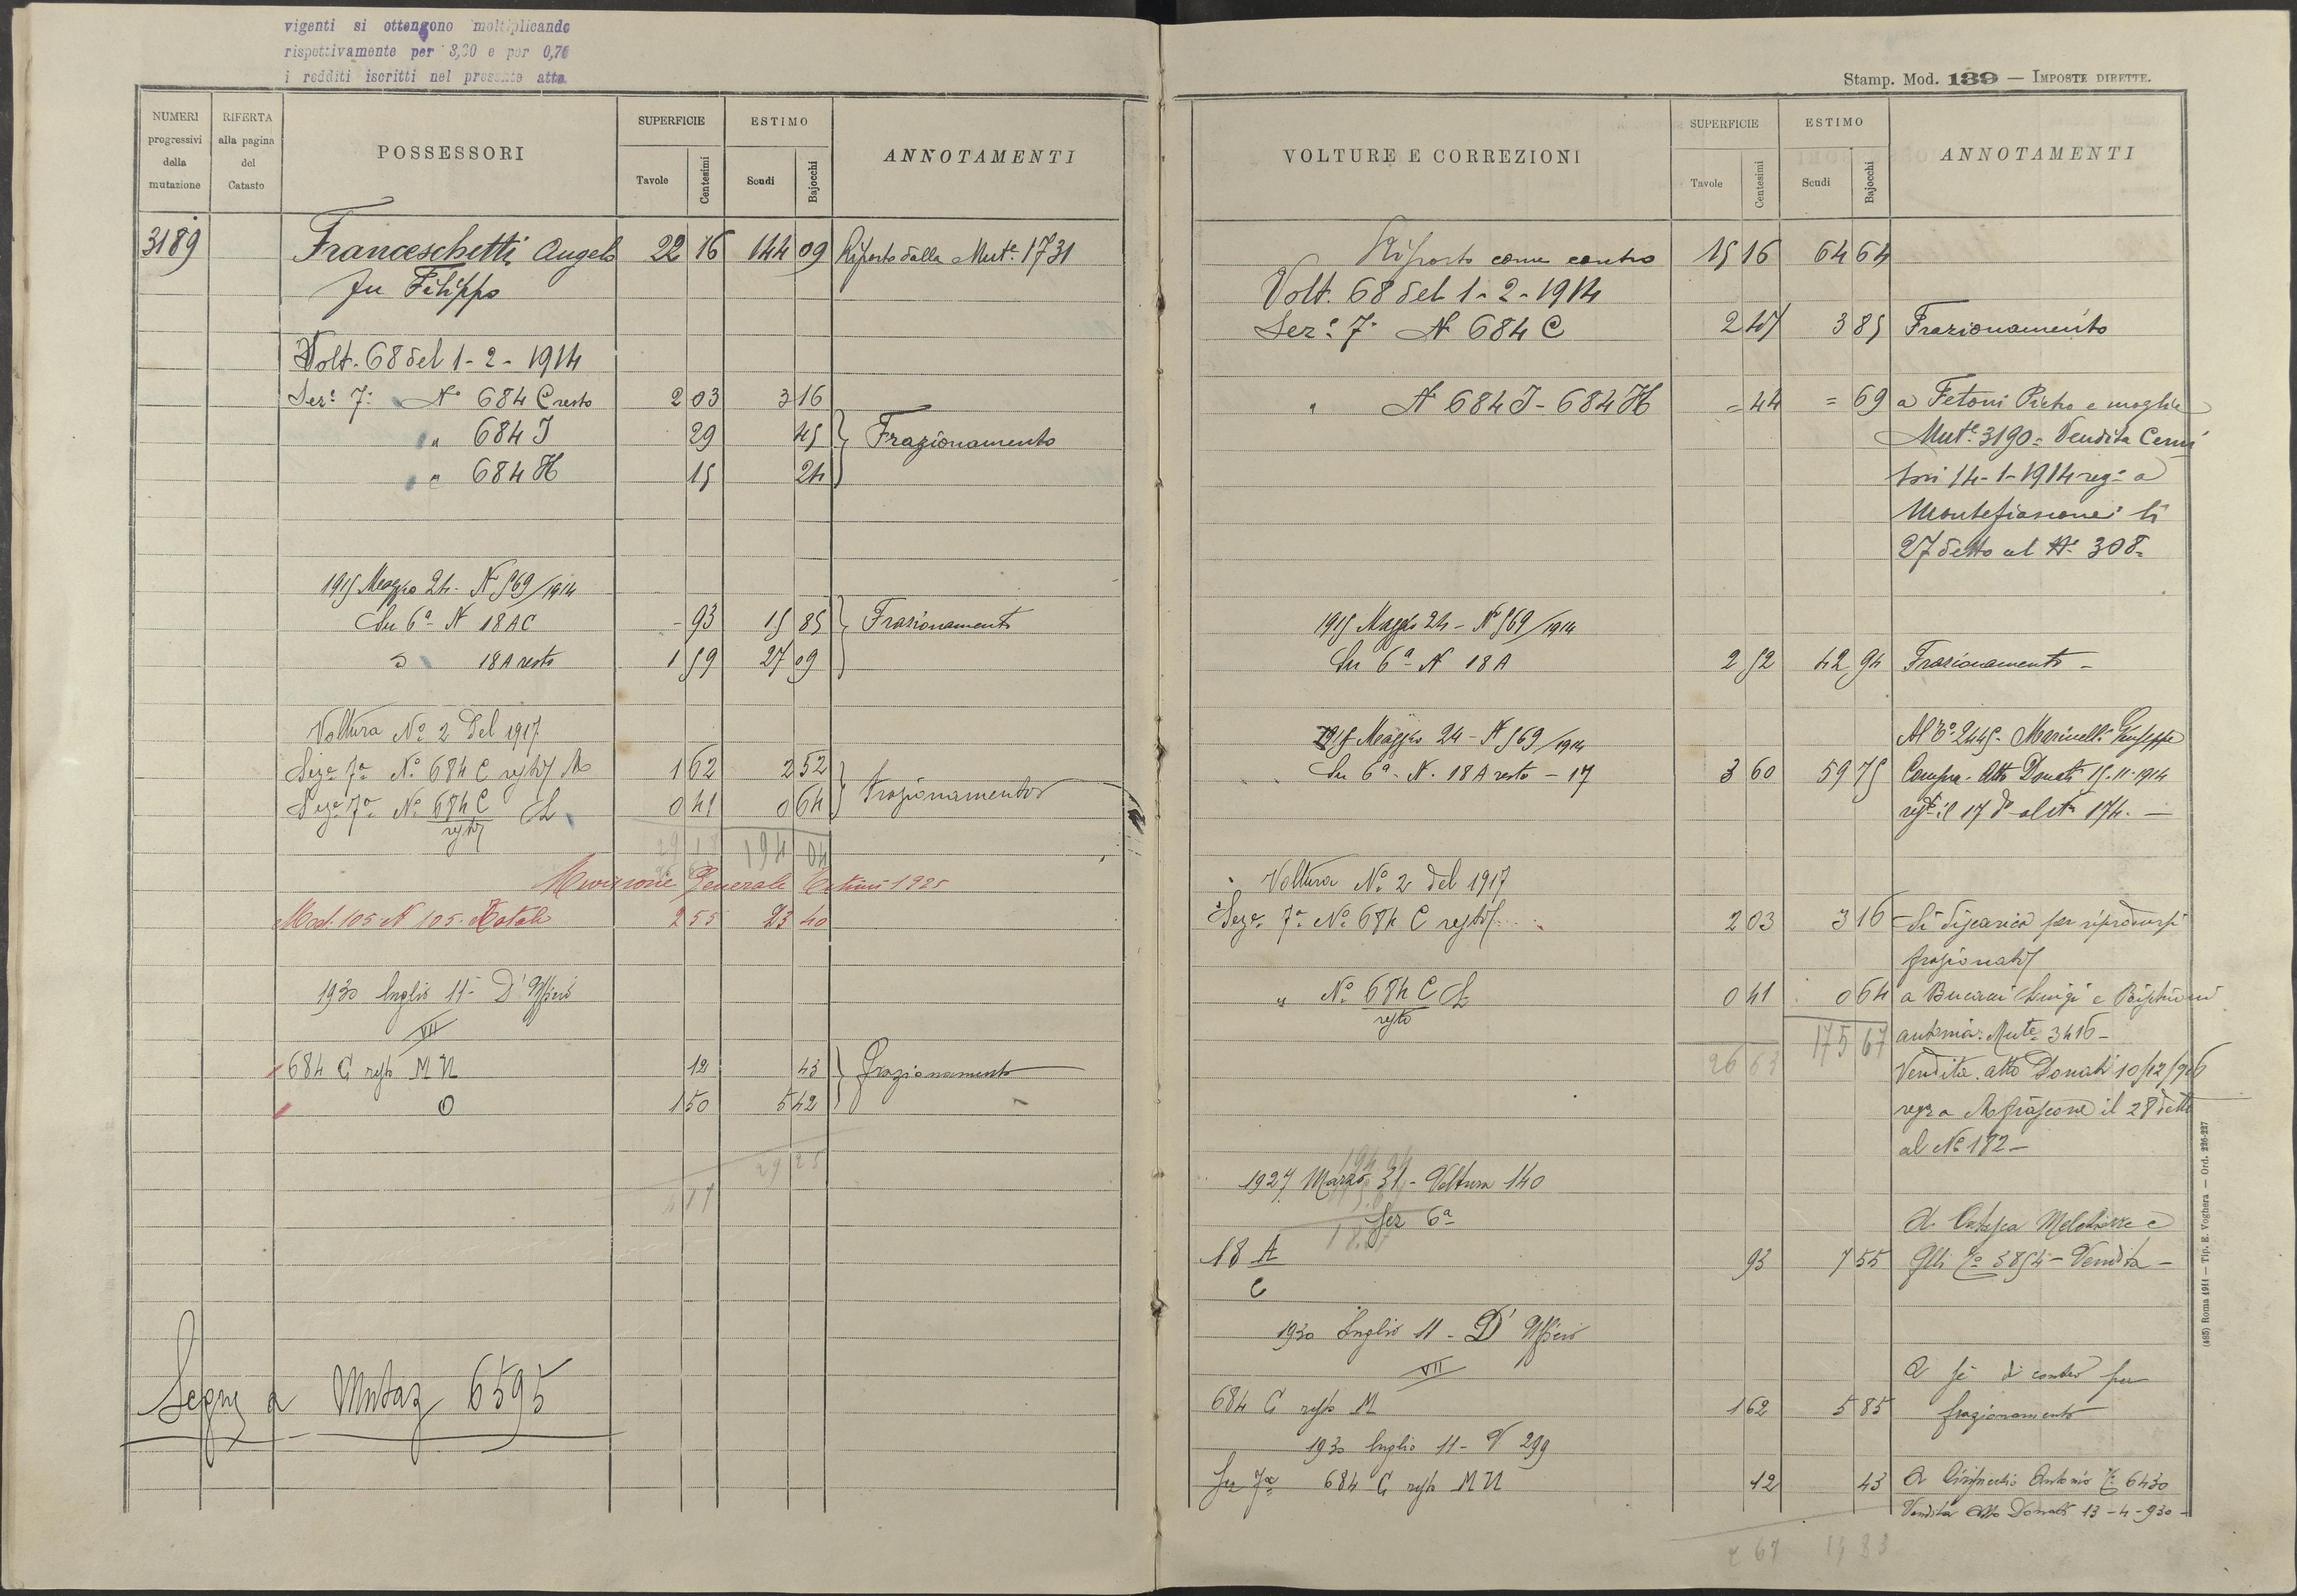 vigenti si ottengono moltiplicando
rispettivamente per 3,30 e per 0,76
i redditi iscritti nel presente atto
NUMERI progressivi della mutazione
RIFERTA alla pagina del Catasto
POSSESSORI
SUPERFICIE
Tavole Centesimi
ESTIMO
Scudi Bajocchi
ANNOTAMENTI
3189 Franceschetti Angelo 22 16 144 09 Riporto dalla Mut.e 1731
fu Filippo
Volt. 68 del 1-2-1914
Sez.e 7.a N° 684 C resto 2 03 3 16
" 684 I 29 45 Frazionamento
" 684 H 15 24
1915 Maggio 24. N 569/1914
Su 6a N 18 AC - 93 15 85 Frazionamento
" 18 A resto 1 59 27 09
Voltura No 2 del 1917
Seze 7a No 684 C resto M 1 62 2 52
Seze 7a No 684 C resto L 0 41 0 64 frazionamento
29 18 194 04
Revisione Generale Estimi 1925
Mod. 105 N 105. Totale 2 55 23 40
1930 luglio 11- D'Ufficio
VII
684 C resto M N 12 43 frazionamento
O 1 50 5 42
29 25
4 17
Segue a Mutaz 6595
Stamp. Mod. 139 — IMPOSTE DIRETTE.
VOLTURE E CORREZIONI
SUPERFICIE
Tavole Centesimi
ESTIMO
Scudi Bajocchi
ANNOTAMENTI
Riporto come contro 15 16 64 64
Volt. 68 del 1-2-1914
Sez.e 7.a N 684 C 2 47 3 85 Frazionamento
" N 684 I - 684 H = 44 = 69 a Fetoni Pietro e moglie
Mut.e 3190 = Vendita
14-1-1914 reg.a a
Montefiascone li
27 detto al N. 308=
1915 Maggio 24 - N 569/1914
Su 6a N 18 A 2 52 42 94 Frazionamento -
1915 Maggio 24 - N 569/1914
Al 2445. Marinelli Giuseppe
Su 6a - N. 18 A resto - 17 3 60 59 75 Compra. Atto Donati 15-11-1914
il 17 do al N 174. —
Voltura No 2 del 1917
Seze 7a No 684 C resto 2 03 3 16 Si discarica per riprodursi
frazionato
" No 684 C resto L 0 41 0 64 a Luigi e
Mute 3416 -
175 67
26 63
Vendita. atto Donati 10/12/916
rega a Mfiascone il 28 detto
al No 182 -
194 04
1927 Marzo 31 - Voltura 140
Sez 6a
A Melchiorre e
18 A/C 93 7 55 Vendita -
1930 luglio 11 - D'Ufficio
VII
A sé di contro per
684 C resto M 1 62 5 85 frazionamento
1930 luglio 11 - V 299
Su 7a 684 C resto M N 12 43 A Antonio 6430
Vendita Atto Donati 13-4-930 -
2 67
(485) Roma 1911 — Tip. E. Voghera — Ord. 226-227